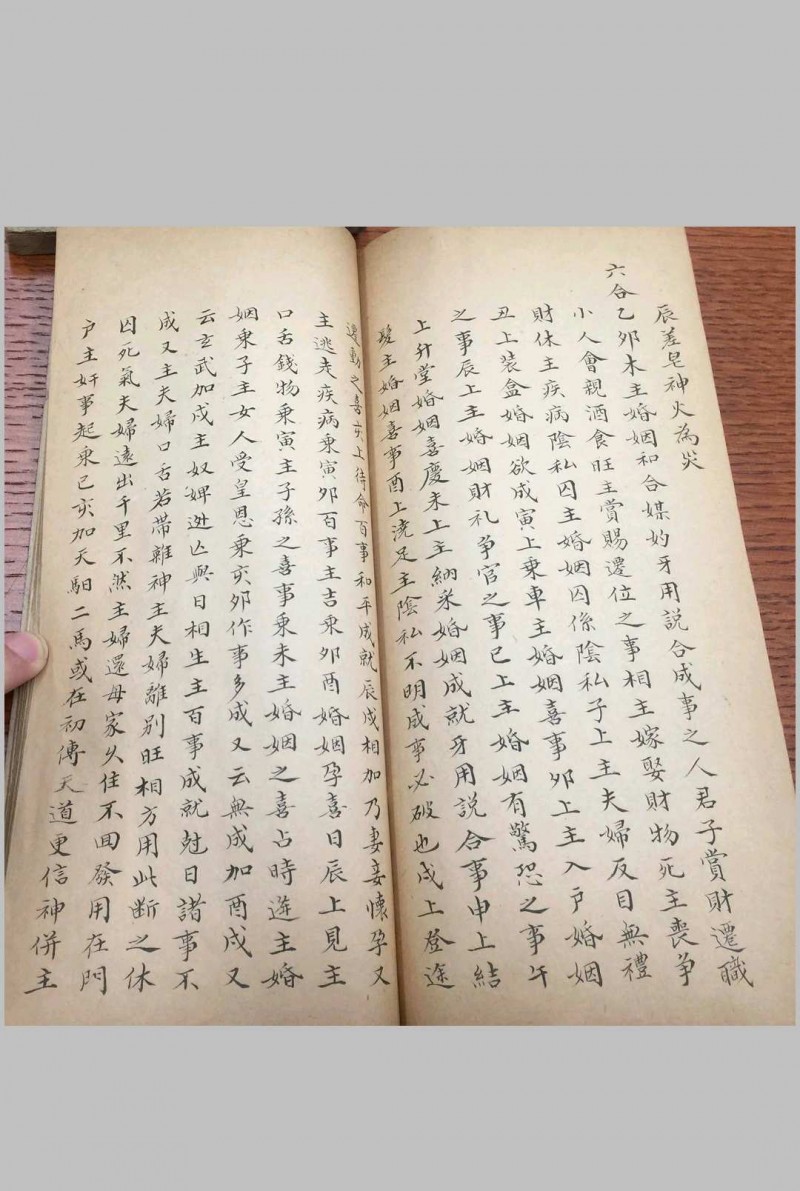 辰差皂神火為災
六合乙卯木主婚姻和合媒妁牙用說合成事之人君子賞財遷職
小人會親酒食旺主賞賜遷位之事相主嫁娶財物死主喪爭
財休主疾病陰私囚主婚姻囚係陰私子上主夫婦反目無禮
丑上裝盒婚姻欲成寅上乘車主婚姻喜事卯上主入戶婚姻
之事辰上主婚姻財礼爭官之事巳上主婚姻有驚恐之事午
上升堂婚姻喜慶未上主納采婚姻成就牙用說合事申上結
髮主婚姻喜事酉上澆足主陰私不明成事必破也戌上登途
遷動之喜亥上待命百事和平成就辰戌相加乃妻妾懷孕又
主逃走疾病乘寅卯百事主吉乘卯酉婚姻孕喜日辰上見主
口舌錢物乘寅主子孫之喜事乘未主婚姻之喜占時遊主婚
姻乘子主女人受皇恩乘亥卯作事多成又云無成加酉戌又
云玄武加戌主奴婢迯亾與日相生主百事成就尅日諸事不
成又主夫婦口舌若帶離神主夫婦離別旺相方用此斷之休
囚死氣夫婦遠出千里不然主婦還母家久住不回發用在門
戶主奸事起乘巳亥加天馹二馬或在初傳天道更信神併主